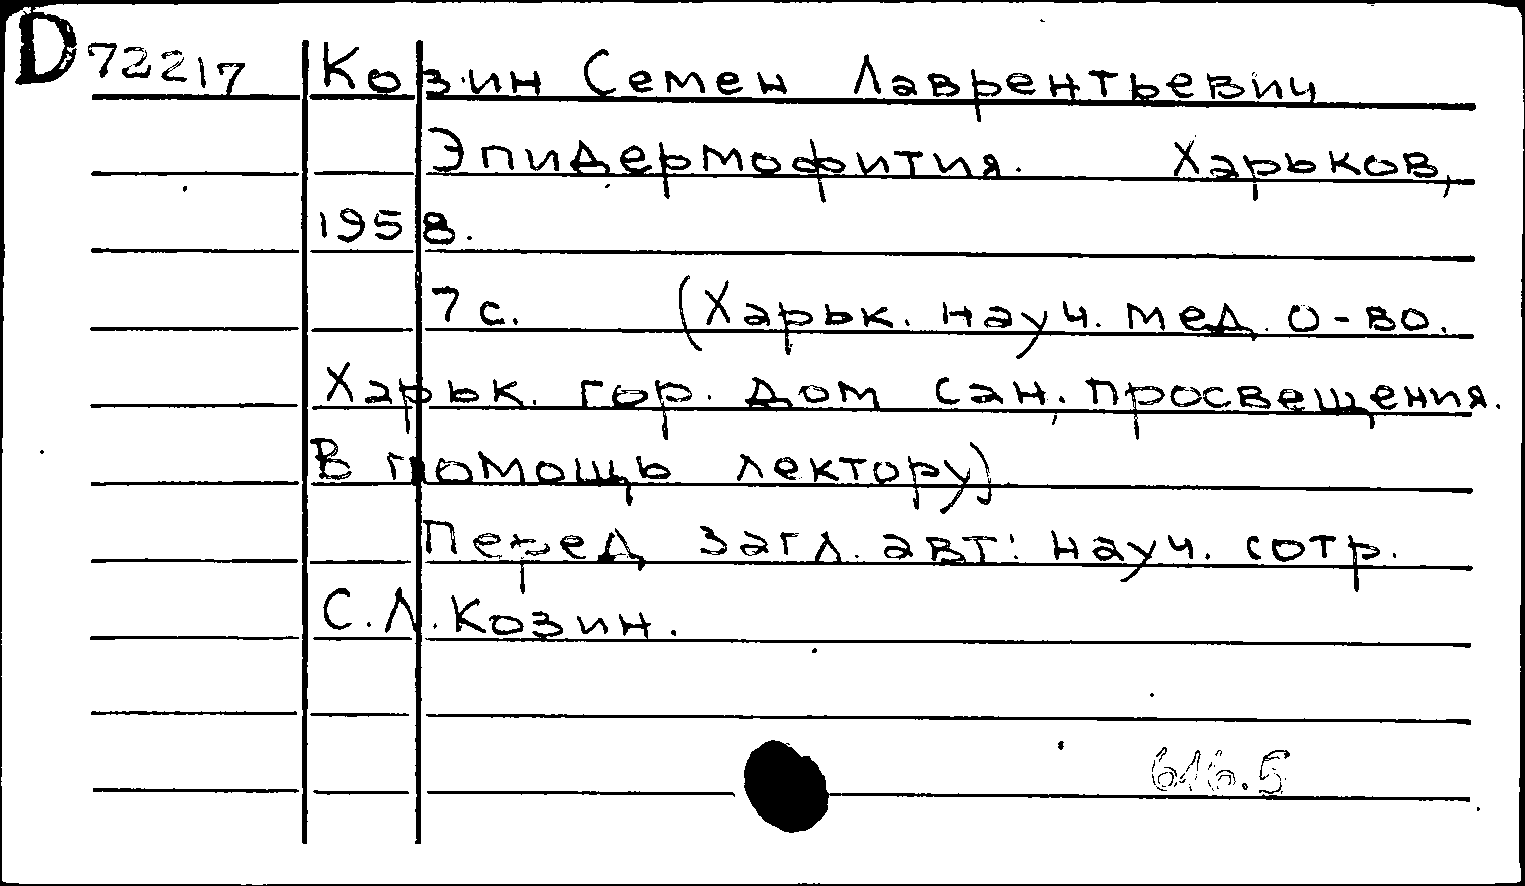 D 72217 Козин Семен Лаврентьевич
Эпидермофития. Харьков,
1958.
7 с. (Харьк. науч. мед. о-во.
Харьк. гор. дом сан. просвещения.
В помощь лектору)
Перед загл. авт: науч. сотр.
С.Л. Козин.
616.5